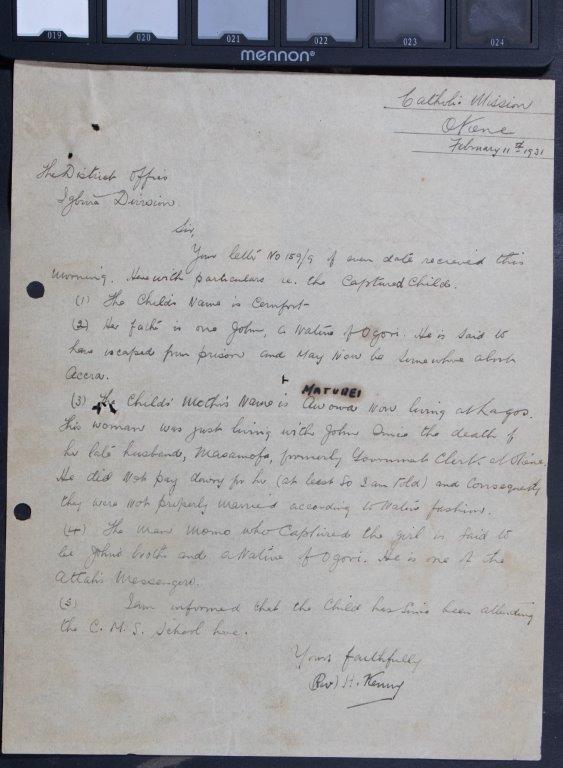 019 020 021 022 023 024
mennon®
Catholic Mission
Okene
February 11th 1931
The District Office
Igbira Division.
Sir,
Your letter No 159/9 of even date recieved this
morning. Herewith particulars i.e. the Captured Child.
(1) The Childs Name is Comfort
(2) Her father is one John, a Native of Ogori. He is said to
have escaped from prison and May Now be Somewhere about
Accra.
MATUREI
(3) The Childs' Mother's Name is Awowa Now living at Lagos.
This woman was just living with John Since the death of
her late husband, Masamofa, formerly Government Clerk at Okene.
He did Not pay dowry for her (at least So I am told) and Consequently
they were Not properly Married according to Native fashion.
(4) The Man Momo who Captured the girl is Said to
be John's brother and a Native of Ogori. He is one of the
Attah's Messengers.
(5) I am informed that the Child has Since been attending
the C. M. S. School here.
Yours faithfully
(Rev) H. Kenny